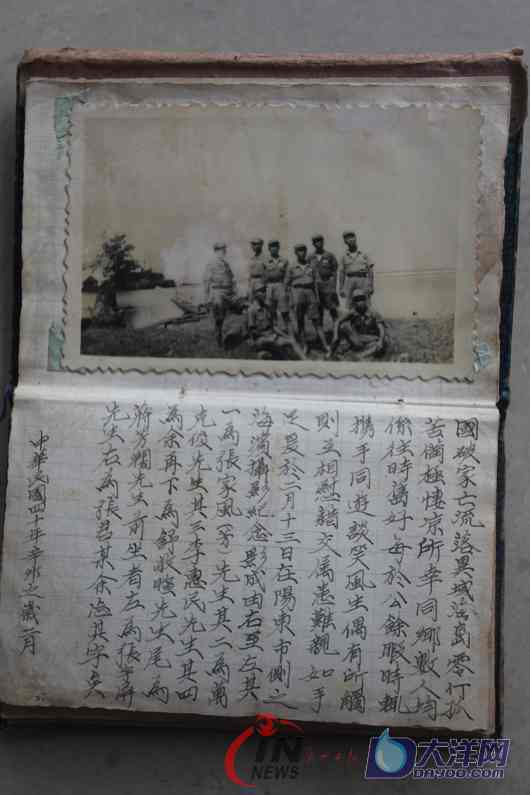 國破家亡流落異域海島零仃孤
苦個極悽凉所幸同鄉數人均
係往時舊好每於公餘暇時輒
携手同遊談笑風生偶有所觸
則互相慰藉交属患難親如手
足爰於二月十三日在陽東市側之
海濱攝影紀念影成由右至左其
一為張家風(芳)先生其二為萬
先俊先生其三李惠民先生其四
為余再下為舒 先生尾為
蔣 先生前坐者左為張 屏
先生右為張君某余忘其字矣
中華民國四十年辛卯之歲二月
IN
NEWS
大洋网
DAYOO.COM